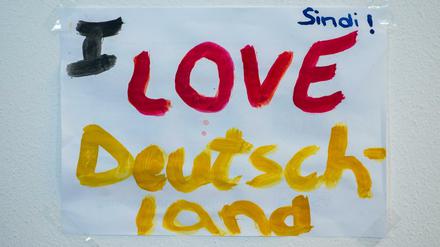 Sindi!
I LOVE
Deutsch-
land